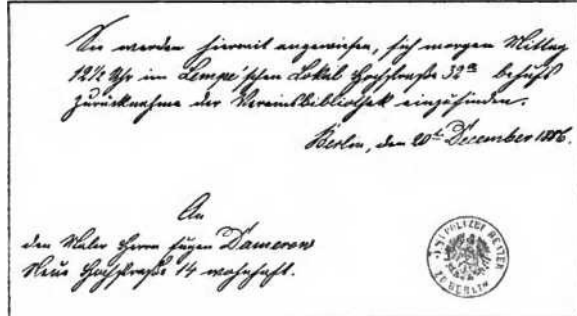 Sie werden hiermit angewiesen, sich morgen Mittag
12½ Uhr im Lempe'schen Lokal Hochstraße 32a behufs
Zurücknahme der Vereinsbibliothek einzufinden.
Berlin, den 20t. December 1886.
An
den Maler Herrn Eugen Damerow
Neue Hochstraße 14 wohnhaft.
POLIZEI REVIER
ZU BERLIN